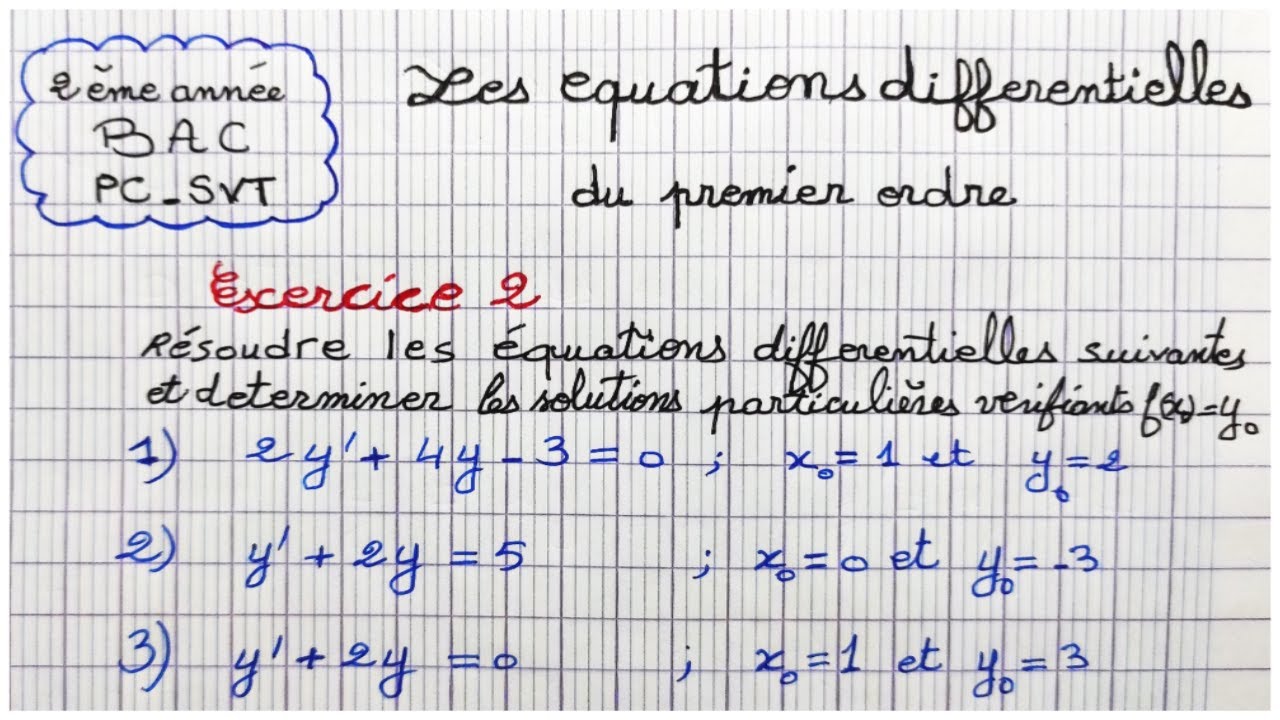 2ème année
BAC
PC_SVT
Les equations differentielles
du premier ordre
Exercice 2
Résoudre les équations differentielles suivantes
et determiner les solutions particulières verifiants f(x₀)=y₀
1) 2y' + 4y - 3 = 0 ; x₀ = 1 et y₀ = 2
2) y' + 2y = 5 ; x₀ = 0 et y₀ = -3
3) y' + 2y = 0 ; x₀ = 1 et y₀ = 3